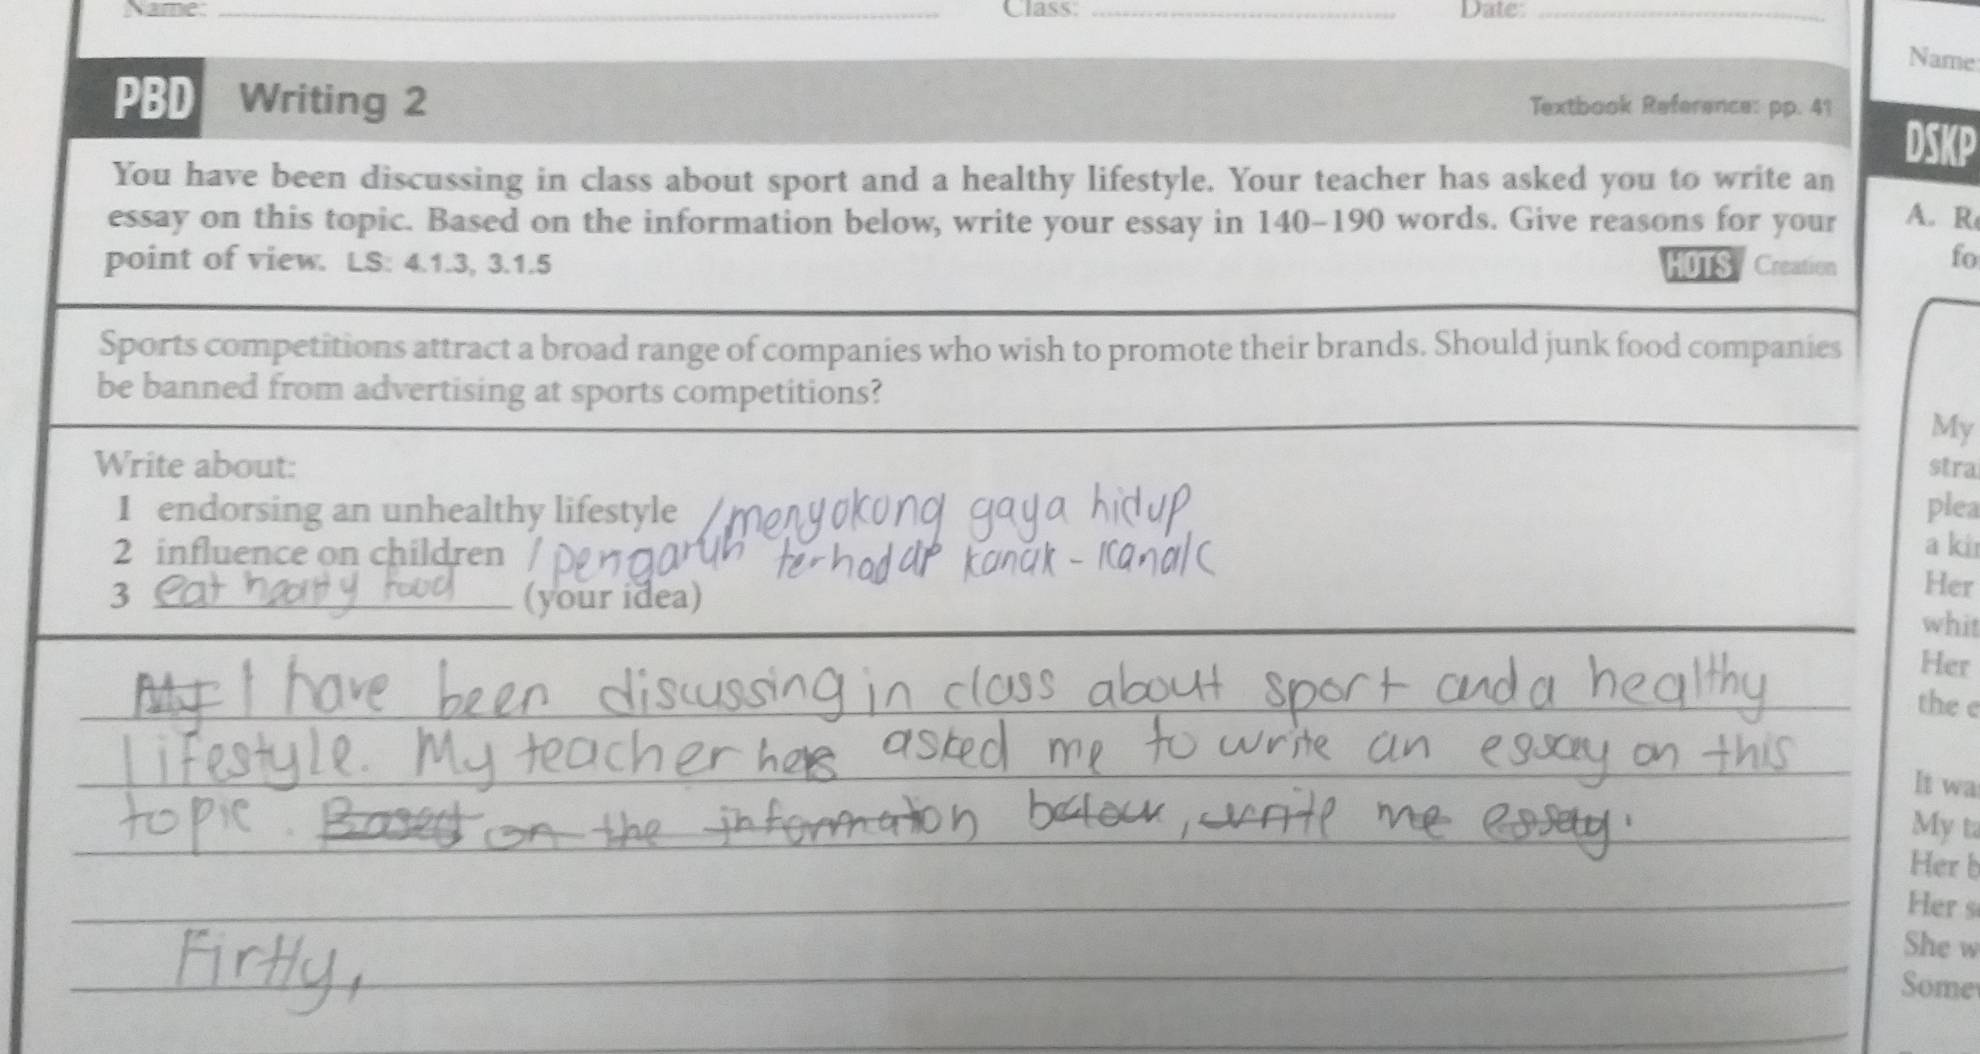 Name: Class: Date:
PBD Writing 2 Textbook Reference: pp. 41
You have been discussing in class about sport and a healthy lifestyle. Your teacher has asked you to write an
essay on this topic. Based on the information below, write your essay in 140–190 words. Give reasons for your
point of view. LS: 4.1.3, 3.1.5 HOTS Creation
Sports competitions attract a broad range of companies who wish to promote their brands. Should junk food companies
be banned from advertising at sports competitions?
Write about:
1 endorsing an unhealthy lifestyle / menyokong gaya hidup
2 influence on children / pengaruh terhadap kanak-kanak
3 eat food (your idea)
I have been discussing in class about sport and a healthy
lifestyle. My teacher has asked me to write an essay on this
topic. Based on the information, write me essay.
Firtly,
Name:
DSKP
A. R
fo
My
stra
plea
a ki
Her
whit
Her
the e
It wa
My t
Her b
Her s
She w
Some